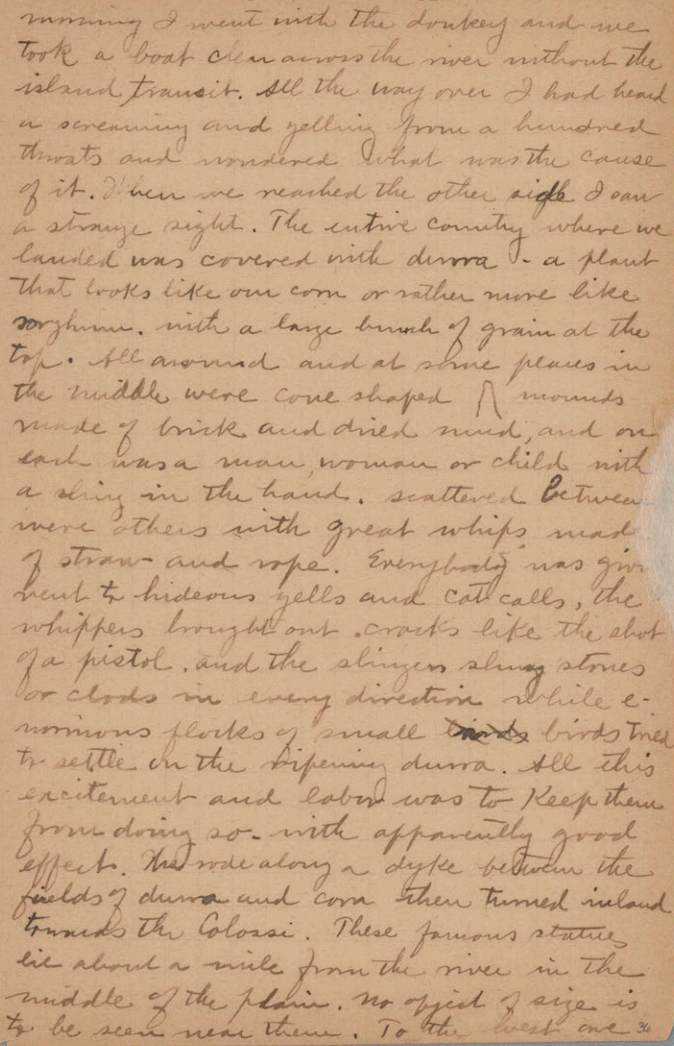 morning I went with the donkey and we
took a boat clear across the river without the
island transit. All the way over I had heard
a screaming and yelling from a hundred
throats and wondered what was the cause
of it. When we reached the other side I saw
a strange sight. The entire country where we
landed was covered with durra - a plant
that looks like our corn or rather more like
sorghum. with a large bunch of grain at the
top. All around and at some places in
the middle were cone shaped mounds
made of brick and dried mud, and on
each was a man, woman or child with
a sling in the hand. scattered between
were others with great whips mad
of straw and rope. Everybody was givi
vent to hideous yells and cat calls, the
whippers brought out cracks like the shot
of a pistol. and the slingers slung stones
or clods in every direction while e-
normous flocks of small birds tried
to settle on the ripening durra. All this
excitement and labor was to Keep them
from doing so - with apparently good
effect. We rode along a dyke between the
fields of durra and corn then turned inland
towards the Colossi. These famous statues
lie about a mile from the river in the
middle of the plain. No object of size is
to be seen near them. To the west are 36